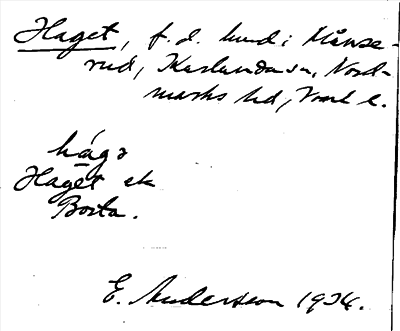 Haget, f.d. lund i Månse-
rud, Karlanda sn, Nord-
marks hd, Vrml l.
håga
Haget ek
Borta.
E. Andersson 1934.